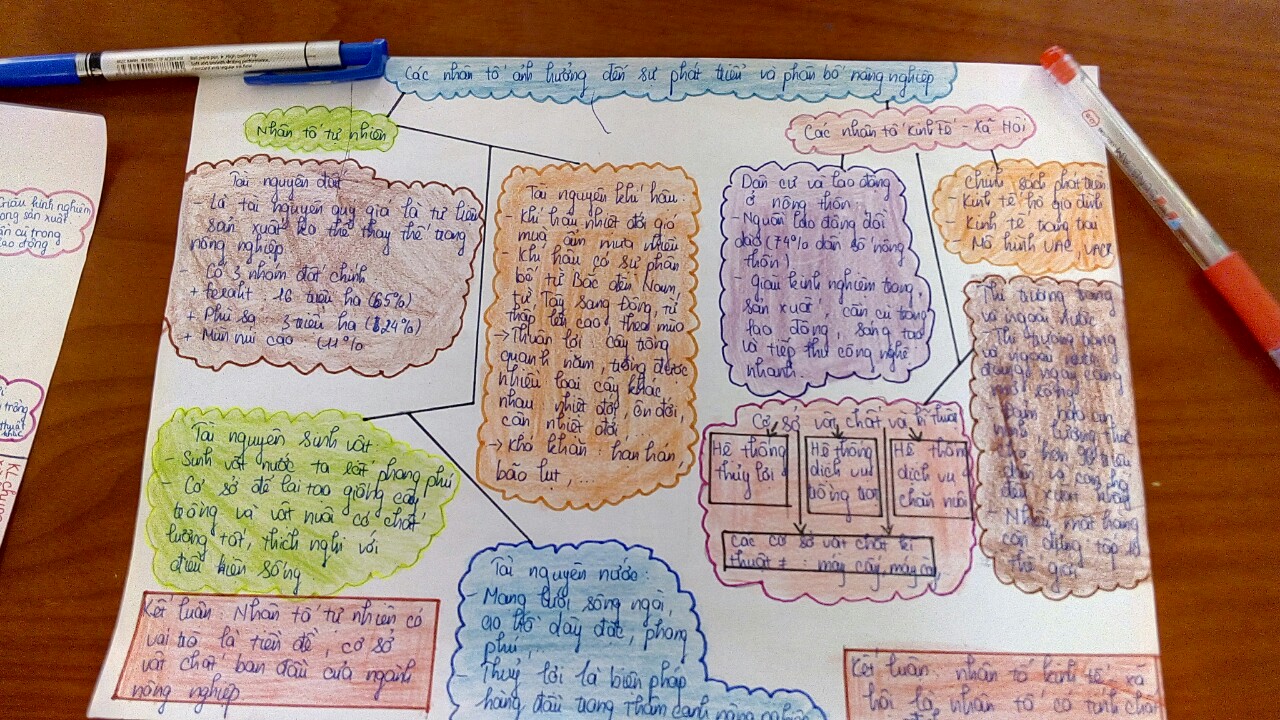 Các nhân tố ảnh hưởng đến sự phát triển và phân bố nông nghiệp
Nhân tố tự nhiên
Tài nguyên đất
- Là tài nguyên quý giá là tư liệu
sản xuất ko thể thay thế trong
nông nghiệp
- Có 3 nhóm đất chính
+ feralit : 16 triệu ha (65%)
+ Phù sa : 3 triệu ha (24%)
+ Mùn núi cao (11%
Tài nguyên khí hậu
- Khí hậu nhiệt đới gió
mùa ẩm mưa nhiều
- Khí hậu có sự phân
bố từ Bắc đến Nam,
từ Tây sang Đông, từ
thấp lên cao, theo mùa
→ Thuận lợi : cây trồng
quanh năm, trồng được
nhiều loại cây khác
nhau nhiệt đới, ôn đới,
cận nhiệt đới
→ Khó khăn : hạn hán,
bão lụt,...
Tài nguyên sinh vật
- Sinh vật nước ta rất phong phú
- Cơ sở để lai tạo giống cây
trồng và vật nuôi có chất
lượng tốt, thích nghi với
điều kiện sống
Tài nguyên nước:
- Mạng lưới sông ngòi,
ao hồ dày đặc, phong
phú,...
- Thuỷ lợi là biện pháp
hàng đầu trong thâm canh nông nghiệp
Kết luận : Nhân tố tự nhiên có
vai trò là tiền đề, cơ sở
vật chất ban đầu của ngành
nông nghiệp
Các nhân tố kinh tế - Xã Hội
Dân cư và lao động
ở nông thôn
- Nguồn lao động dồi
dào (74% dân số nông
thôn)
- giàu kinh nghiệm trong
sản xuất, cần cù trong
lao động, sáng tạo
và tiếp thu công nghệ
nhanh.
Chính sách phát triển
- Kinh tế hộ gia đình
Kinh tế trang trại
- Mô hình VAC, VACR
Cơ sở vật chất và kĩ thuật
Hệ thống
thủy lợi
Hệ thống
dịch vụ
trồng trọt
Hệ thống
dịch vụ
chăn nuôi
các cơ sở vật chất kĩ
thuật ≠ : máy cấy, máy cày,
Thị trường trong
và ngoài nước
Thị trường trong
và ngoài nước
được ngày càng
mở rộng
- Đảm bảo an
ninh lương thực
cho hơn 90 triệu
dân và còn để
xuất khẩu
- Nhiều mặt hàng
còn đứng top 10
thế giới
Kết luận : nhân tố kinh tế xã
hội là nhân tố có tính chất
giàu kinh nghiệm
trong sản xuất
cần cù trong
lao động